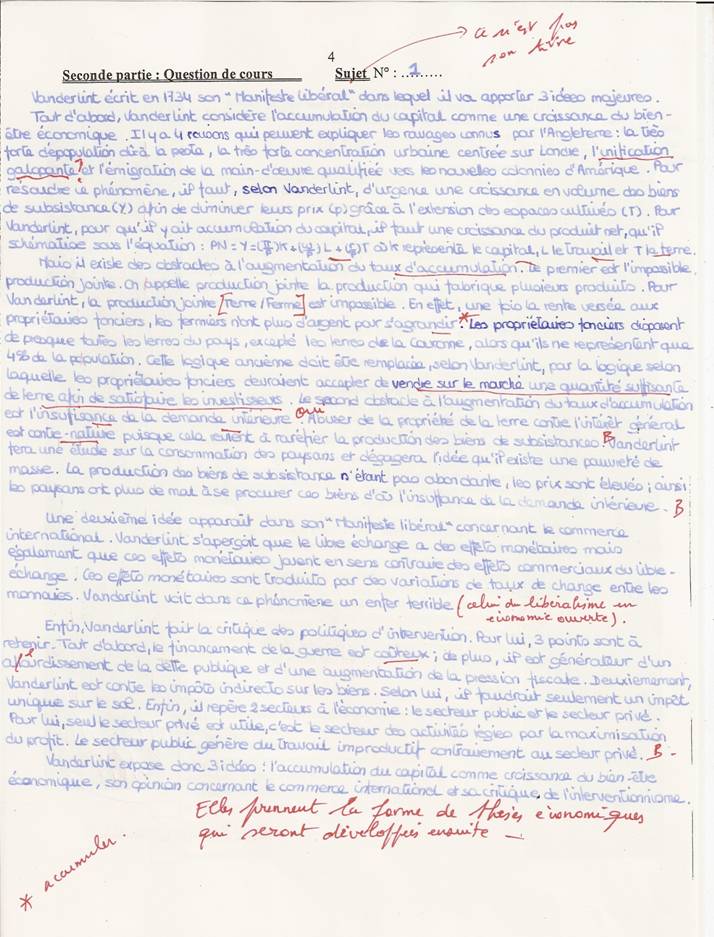 ce n'est pas
son titre
4
Seconde partie : Question de cours Sujet N° : ...1......
Vanderlint écrit en 1734 son "Manifeste libéral" dans lequel il va apporter 3 idées majeures.
Tout d'abord, Vanderlint considère l'accumulation du capital comme une croissance du bien-
être économique. Il y a 4 raisons qui peuvent expliquer les ravages connus par l'Angleterre : la très
forte dépopulation dû à la peste, la très forte concentration urbaine centrée sur Londre, l'unification
galopante ? et l'émigration de la main-d'œuvre qualifiée vers les nouvelles colonnies d'Amérique. Pour
résoudre ce phénomène, il faut, selon Vanderlint, d'urgence une croissance en volume des biens
de subsistance (Y) afin de diminuer leurs prix (p) grâce à l'extension des espaces cultivés (T). Pour
Vanderlint, pour qu'il y ait accumulation du capital, il faut une croissance du produit net, qu'il
schématise sous l'équation : PN = Y = K + L + T où K représente le capital, L le travail et T la terre.
Mais il existe des obstacles à l'augmentation du taux d'accumulation. Le premier est l'impossible
production jointe. On appelle production jointe la production qui fabrique plusieurs produits. Pour
Vanderlint, la production jointe [Terre/Ferme] est impossible. En effet, une fois la rente versée aux
propriétaires fonciers, les fermiers n'ont plus d'argent pour s'agrandir. * Les propriétaires fonciers disposent
de presque toutes les terres du pays, excepté les terres de la Couronne, alors qu'ils ne représentent que
4% de la population. Cette logique ancienne doit être remplacée, selon Vanderlint, par la logique selon
laquelle les propriétaires fonciers devraient accepter de vendre sur le marché une quantité suffisante
de terre afin de satisfaire les investisseurs. Le second obstacle à l'augmentation du taux d'accumulation
est l'insuffisance de la demande intérieure. oui Abuser de la propriété de la terre contre l'intérêt général
est contre-nature puisque cela revient à raréfier la production des biens de subsistances. B Vanderlint
fera une étude sur la consommation des paysans et dégagera l'idée qu'il existe une pauvreté de
masse. La production des biens de subsistance n'étant pas abondante, les prix sont élevés ; ainsi
les paysans ont plus de mal à se procurer ces biens d'où l'insuffance de la demande intérieure. B
Une deuxième idée apparaît dans son "Manifeste libéral" concernant le commerce
international. Vanderlint s'aperçoit que le libre échange a des effets monétaires mais
également que ces effets monétaires jouent en sens contraire des effets commerciaux du libre-
échange. Ces effets monétaires sont traduits par des variations de taux de change entre les
monnaies. Vanderlint voit dans ce phénomène un enfer terrible (celui du libéralisme en
économie ouverte).
Enfin, Vanderlint fait la critique des politiques d'intervention. Pour lui, 3 points sont à
retenir. Tout d'abord, le financement de la guerre est coûteux ; de plus, il est générateur d'un
alourdissement de la dette publique et d'une augmentation de la pression fiscale. Deuxièmement,
Vanderlint est contre les impôts indirects sur les biens. Selon lui, il faudrait seulement un impôt
unique sur le sol. Enfin, il repère 2 secteurs à l'économie : le secteur public et le secteur privé.
Pour lui, seul le secteur privé est utile, c'est le secteur des activités régies par la maximisation
du profit. Le secteur public génère du travail improductif contrairement au secteur privé. B -
Vanderlint expose donc 3 idées : l'accumulation du capital comme croissance du bien-être
économique, son opinion concernant le commerce international et sa critique de l'interventionnisme.
Elles prennent la forme de thèses économiques
qui seront développées ensuite -
* accumuler.